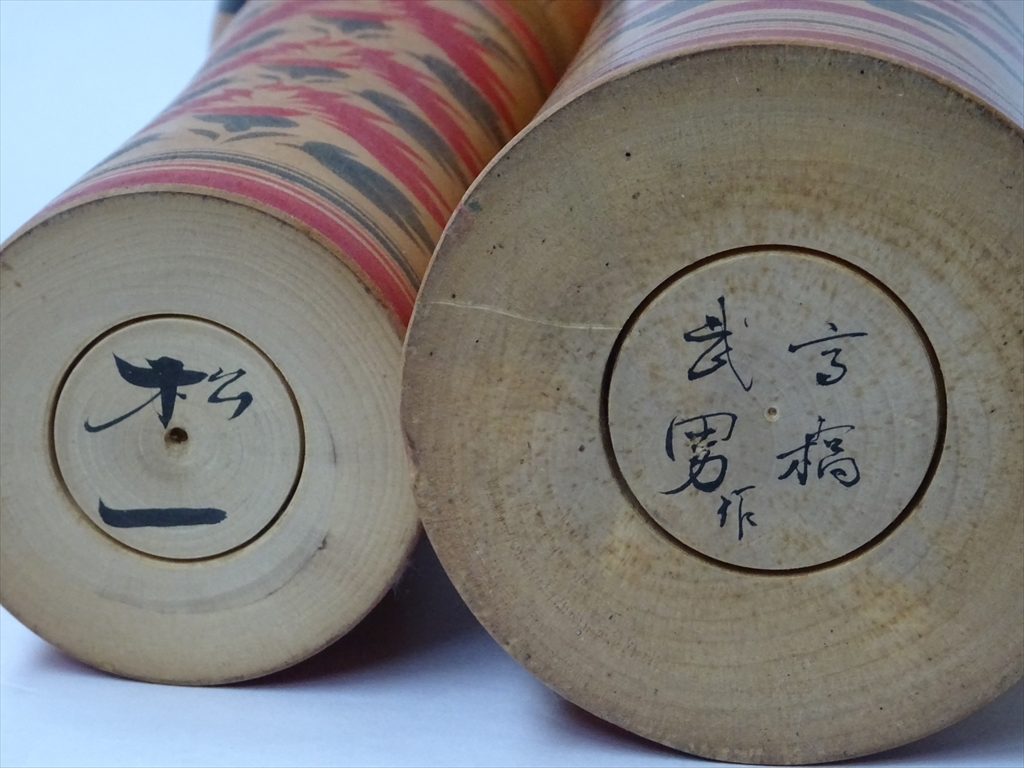 松一
高橋
武男作